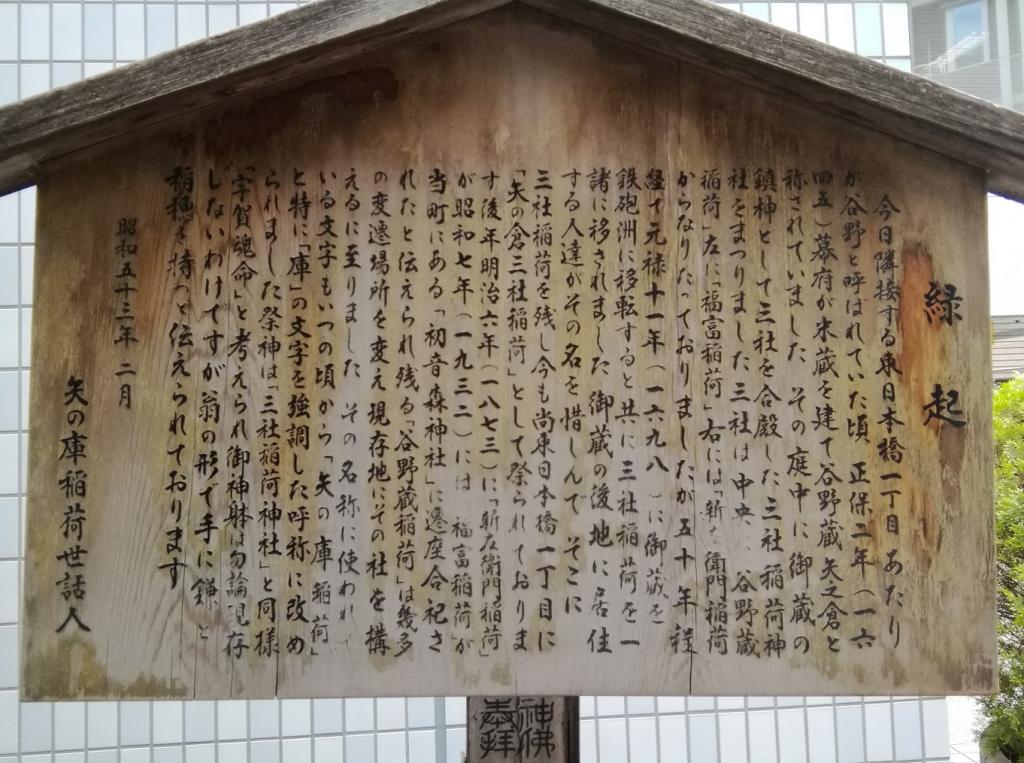 縁起
今日隣接する東日本橋一丁目あたり
が谷野と呼ばれていた頃 正保二年(一六
四五)幕府が米蔵を建て谷野蔵 矢之倉と
称されていました その庭中に御蔵の
鎮神として三社を合殿した三社稲荷神
社をまつりました三社は中央に 谷野蔵
稲荷」左に「福富稲荷」右には「斬 衛門稲荷
からなりたっておりましたが五十年程
経て元禄十一年(一六九八)に御蔵を
鉄砲洲に移転すると共に三社稲荷を一
諸に移されました御蔵の後地に居住
する人達がその名を惜しんで そこに
三社稲荷を残し今も尚東日本橋一丁目に
「矢の倉三社稲荷」として祭られておりま
す後年明治六年(一八七三)に「斬左衛門稲荷」
が昭和七年(一九三二)には 福富稲荷が
当町にある「初音森神社」に遷座合祀さ
れたと伝えられ残る「谷野蔵稲荷」は幾多
の変遷場所を変え現存地にその社を構
えるに至りました その名称に使われ
いる文字もいつの頃からか「矢の庫 稲荷」
と特に「庫」の文字を強調した呼称に改め
られました祭神は「三社稲荷神社」と同様
「宇賀魂命」と考えられ御神躰は勿論現存
しないわけですが翁の形で手に鎌と
稲穂を持つと伝えられております
昭和五十三年 二月
矢の庫稲荷世話人
神佛
奉拝